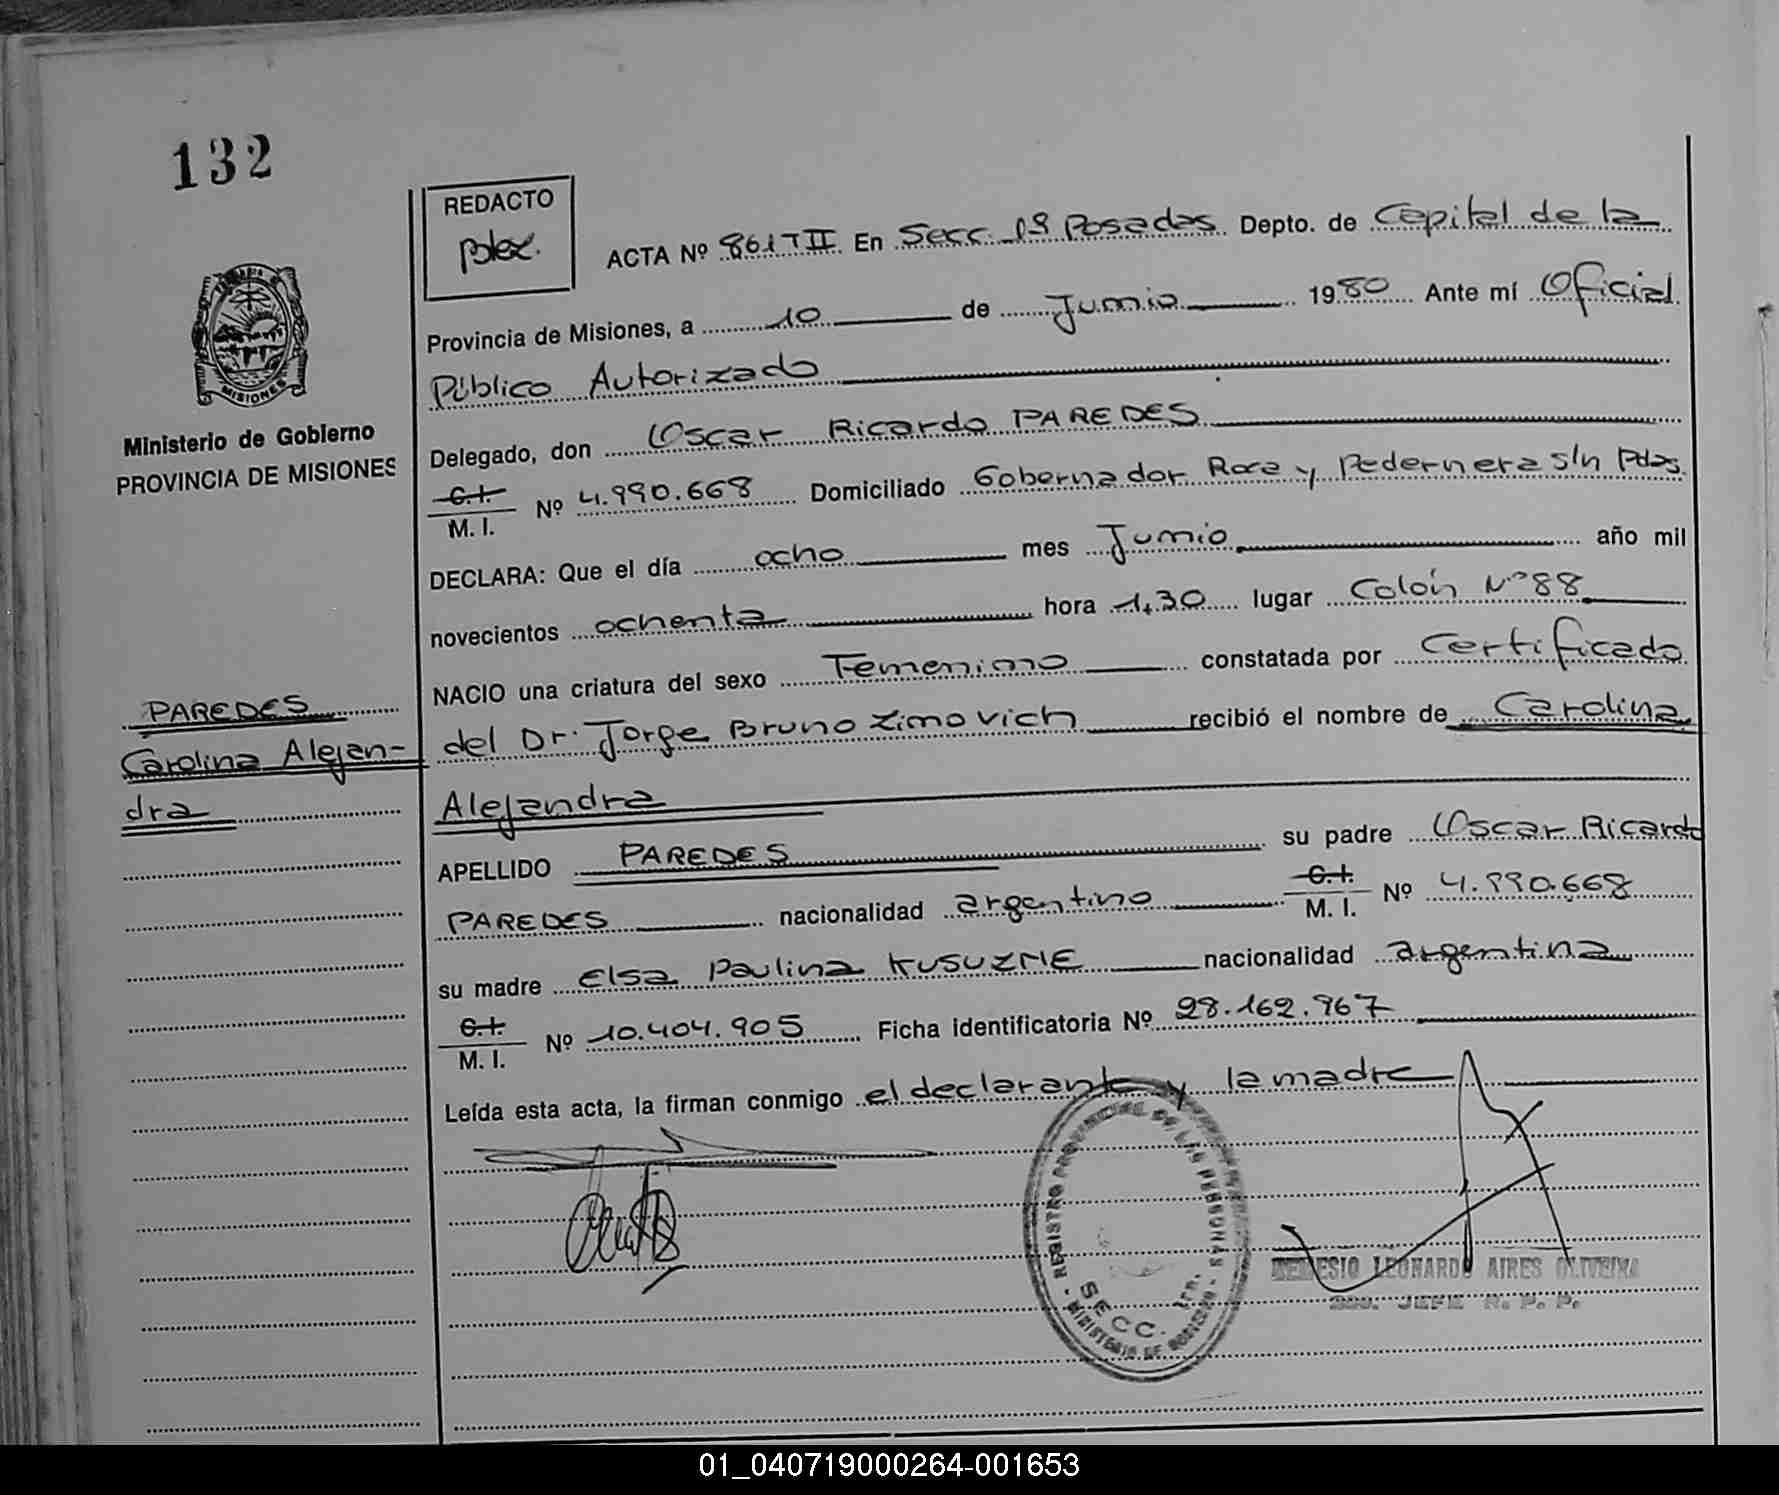 132
REDACTO
ACTA Nº 861 T II En Secc. 1ª Posadas Depto. de Capital de la
Provincia de Misiones, a 10 de Junio 1980 Ante mí Oficial
Público Autorizado
Delegado, don Oscar Ricardo PAREDES
C.I. M. I. Nº 4.990.668 Domiciliado Gobernador Roca y Pedernera s/n Pdas.
DECLARA: Que el día ocho mes Junio año mil
novecientos ochenta hora 1,30 lugar Colón Nº 88
NACIO una criatura del sexo Femenino constatada por Certificado
del Dr. Jorge Bruno Zimovich recibió el nombre de Carolina
Alejandra
APELLIDO PAREDES su padre Oscar Ricardo
PAREDES nacionalidad argentino C.I. M. I. Nº 4.990.668
su madre Elsa Paulina KUSUZNE nacionalidad argentina
C.I. M. I. Nº 10.404.905 Ficha identificatoria Nº 28.162.967
Leída esta acta, la firman conmigo el declarante y la madre
Ministerio de Gobierno
PROVINCIA DE MISIONES
MISIONES
PAREDES
Carolina Alejan-
dra
REGISTRO PROVINCIAL DE LAS PERSONAS - MINISTERIO DE GOBIERNO -
SECC. 1ra.
LEONARDO AIRES OLIVEIRA
JEFE R. P. P.
01_040719000264-001653